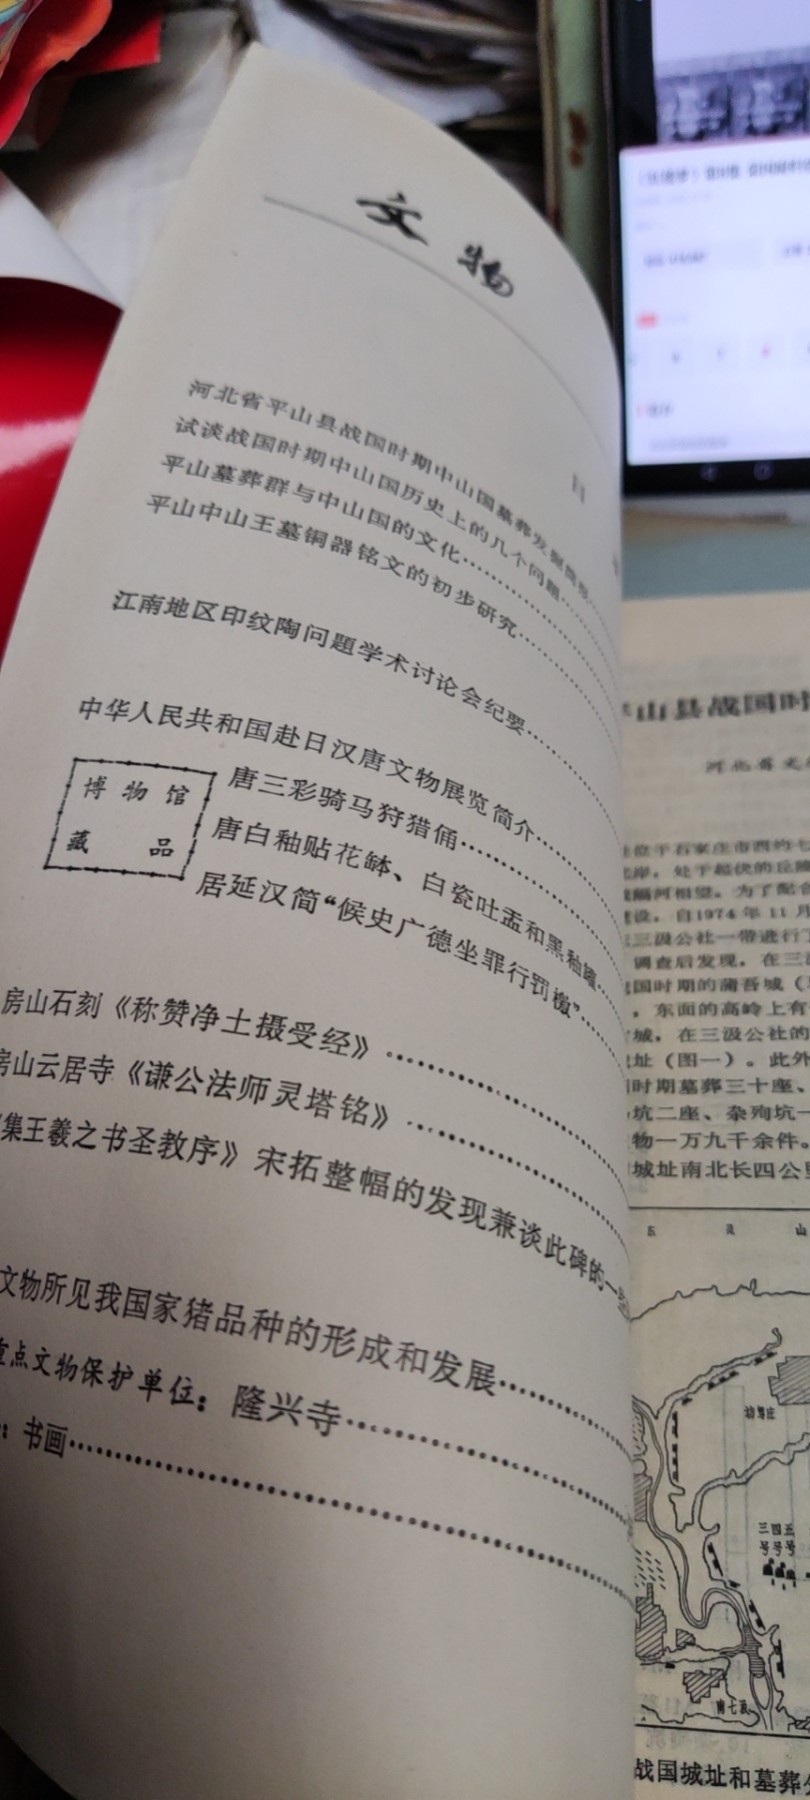 文物
目
河北省平山县战国时期中山国墓葬发掘简报
试谈战国时期中山国历史上的几个问题
平山墓葬群与中山国的文化
平山中山王墓铜器铭文的初步研究
江南地区印纹陶问题学术讨论会纪要
中华人民共和国赴日汉唐文物展览简介
博物馆
藏品
唐三彩骑马狩猎俑
唐白釉贴花钵、白瓷吐盂和黑釉罐
居延汉简“候史广德坐罪行罚檄”
房山石刻《称赞净土摄受经》
房山云居寺《谦公法师灵塔铭》
集王羲之书圣教序》宋拓整幅的发现兼谈此碑的一些
文物所见我国家猪品种的形成和发展
重点文物保护单位：隆兴寺
：书画
山县战国时
河北省文
位于石家庄市西约七
北岸，处于起伏的丘陵
隔河相望。为了配合
建设，自1974年11月
三汲公社一带进行了
调查后发现，在三汲
国时期的蒲吾城（
，东面的高岭上有
城，在三汲公社的
址（图一）。此外
时期墓葬三十座、
坑二座、杂殉坑一
物一万九千余件。
城址南北长四公里
东 灵 山
访驾庄
三四五
号号号
南七汲
战国城址和墓葬分